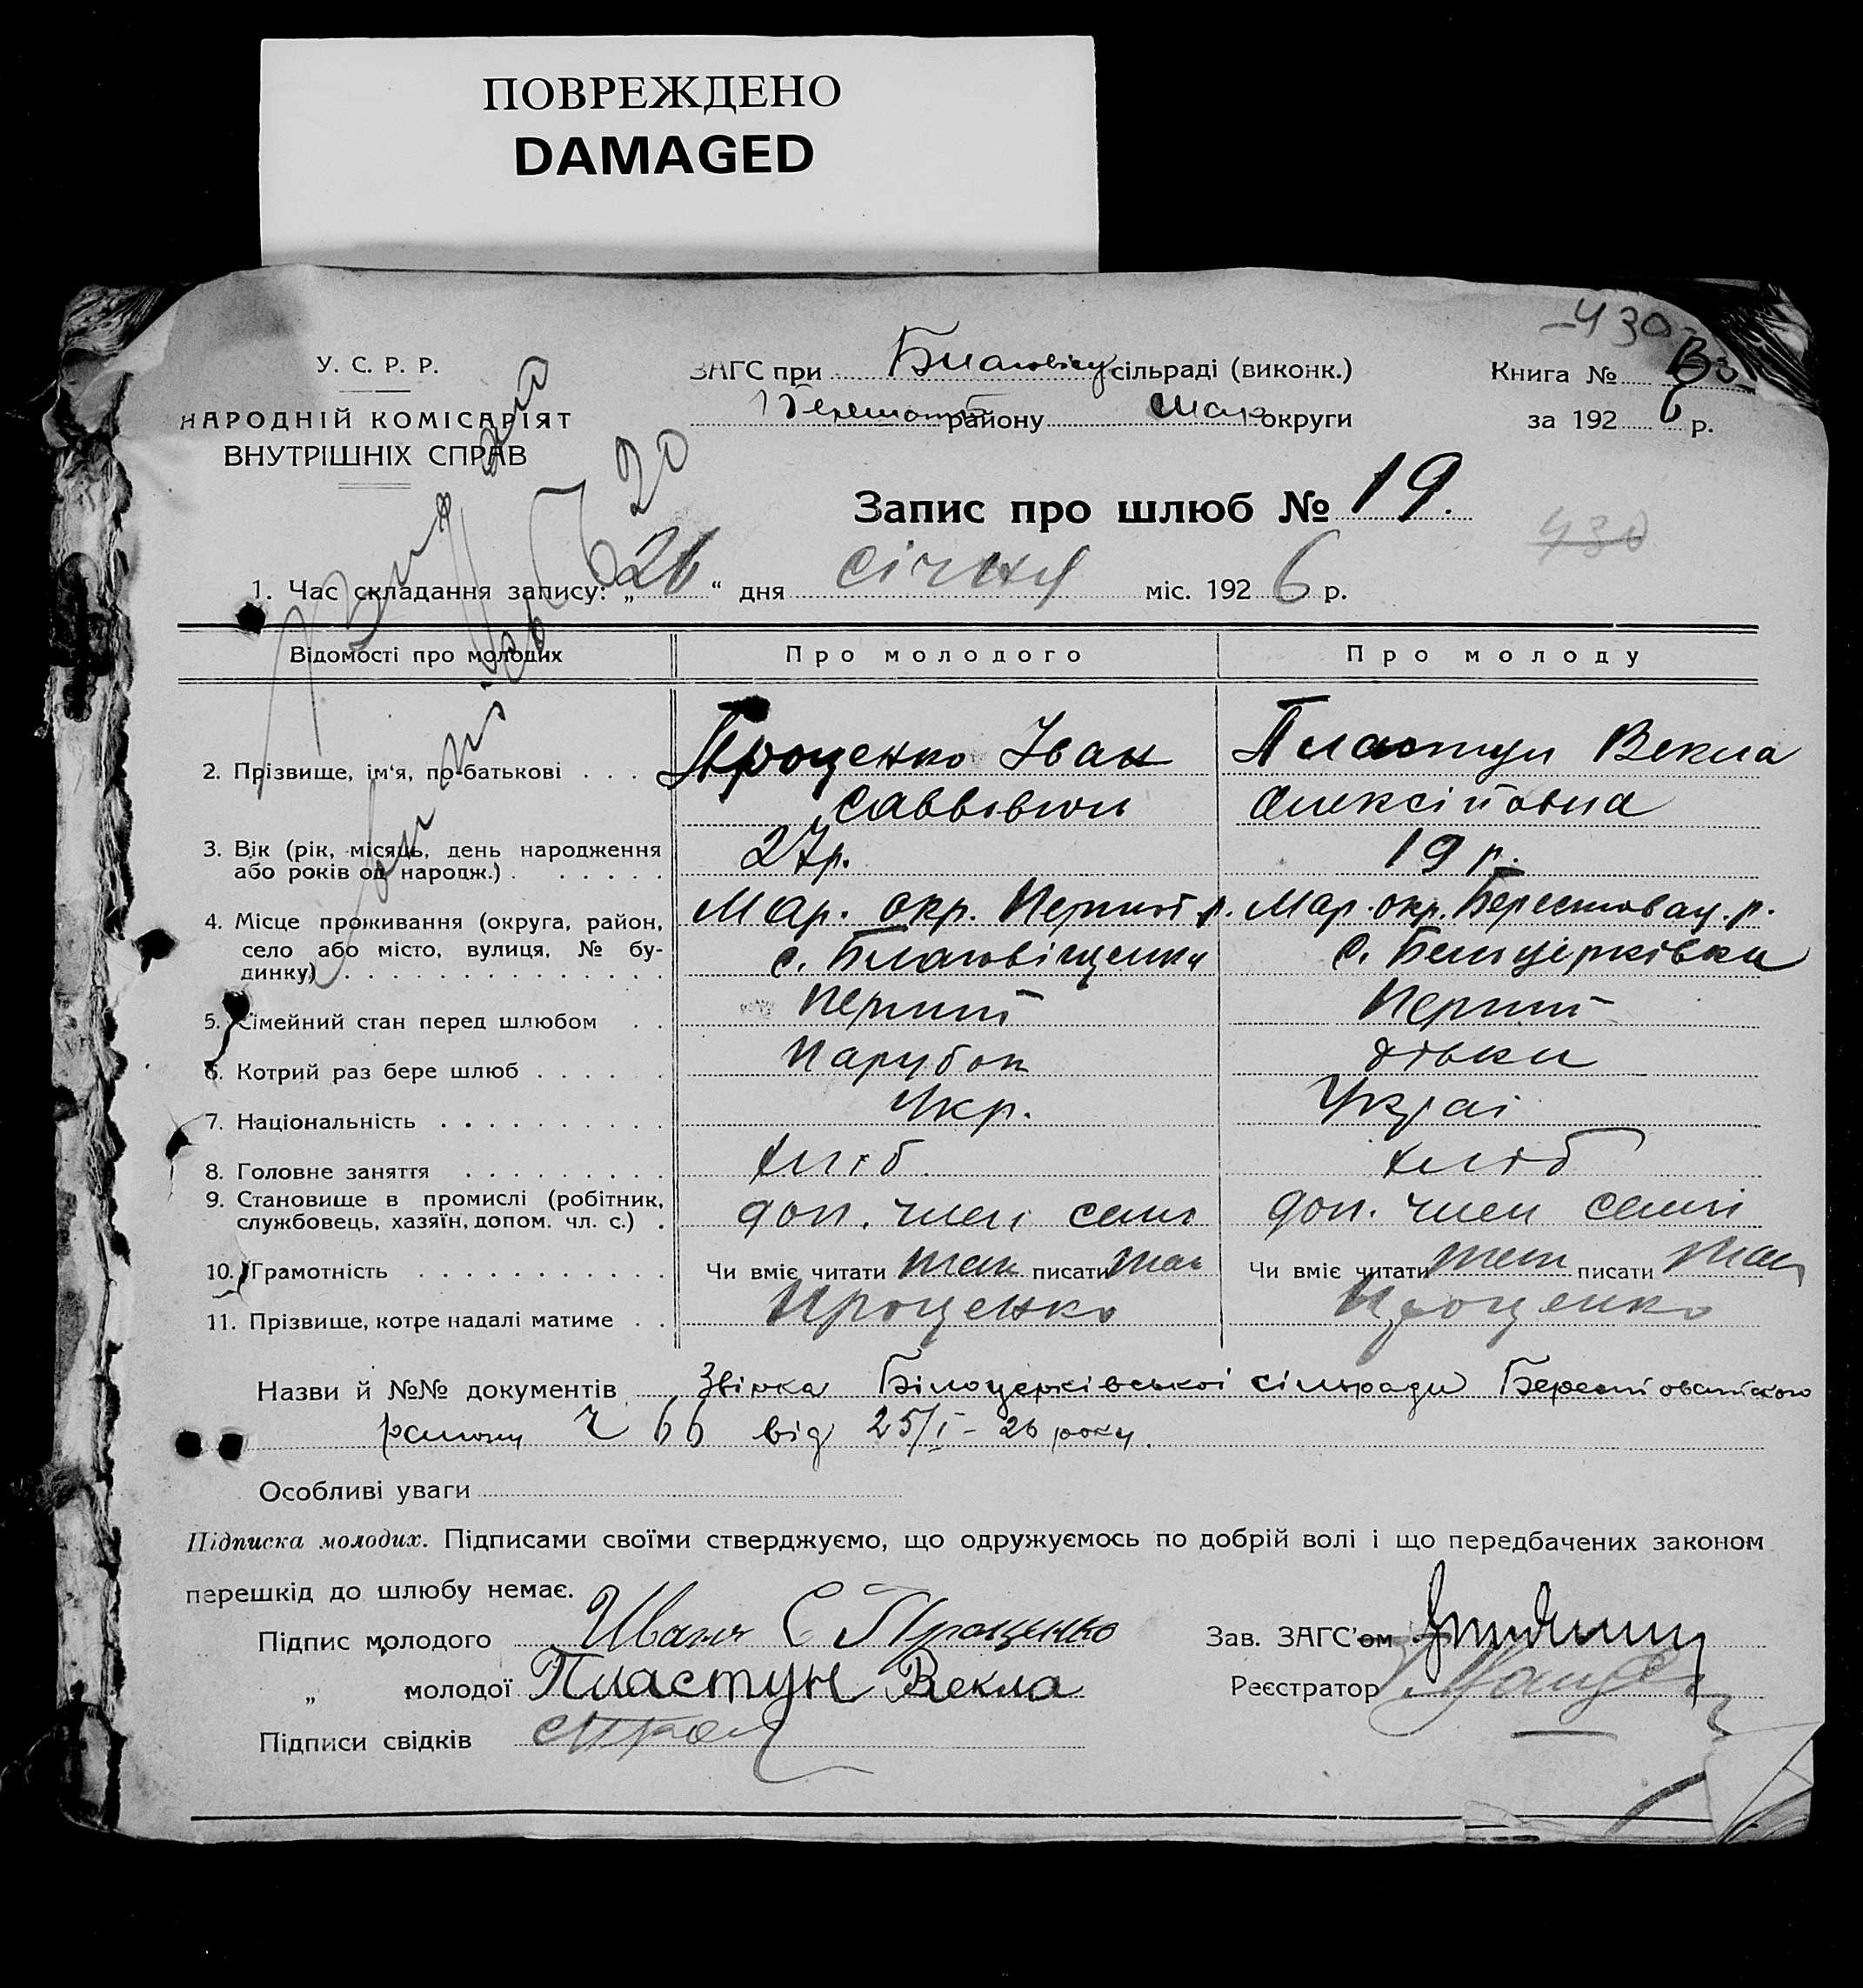 ПОВРЕЖДЕНО
DAMAGED
-430-
У. С. Р. Р.
НАРОДНІЙ КОМІСАРІЯТ
ВНУТРІШНІХ СПРАВ
ЗАГС при Благовіщ сільраді (виконк.)
району Мар округи
Книга №
за 1926 р.
Запис про шлюб № 19.
430
1. Час складання запису: „26“ дня січня міс. 1926 р.
Відомості про молодих Про молодого Про молоду
2. Прізвище, ім‘я, по-батькові Проценко Іван Пластун Векла
Саввович Олексіївна
3. Вік (рік, місяць, день народження або років од народж.) 27р. 19 р.
4. Місце проживання (округа, район, село або місто, вулиця, № будинку) Мар. окр. р. Мар. окр. Берестовац. р.
с. Благовіщенка с. Белоцерківка
5. Сімейний стан перед шлюбом Перший Перший
6. Котрий раз бере шлюб Парубок дівка
7. Національність Укр. Украі
8. Головне заняття хліб хліб
9. Становище в промислі (робітник, службовець, хазяїн, допом. чл. с.) доп. член семі доп. член семі
10. Грамотність Чи вміє читати так писати так Чи вміє читати так писати так
11. Прізвище, котре надалі матиме Проценко Проценко
Назви й №№ документів Звірка Білоцерківської сільради Берестованского
району ч 66 від 25/I - 26 року.
Особливі уваги
Підписка молодих. Підписами своїми стверджуємо, що одружуємось по добрій волі і що передбачених законом
перешкід до шлюбу немає.
Підпис молодого Иван С Проценко Зав. ЗАГС’ом
„ молодої Пластун Векла Реєстратор
Підписи свідків